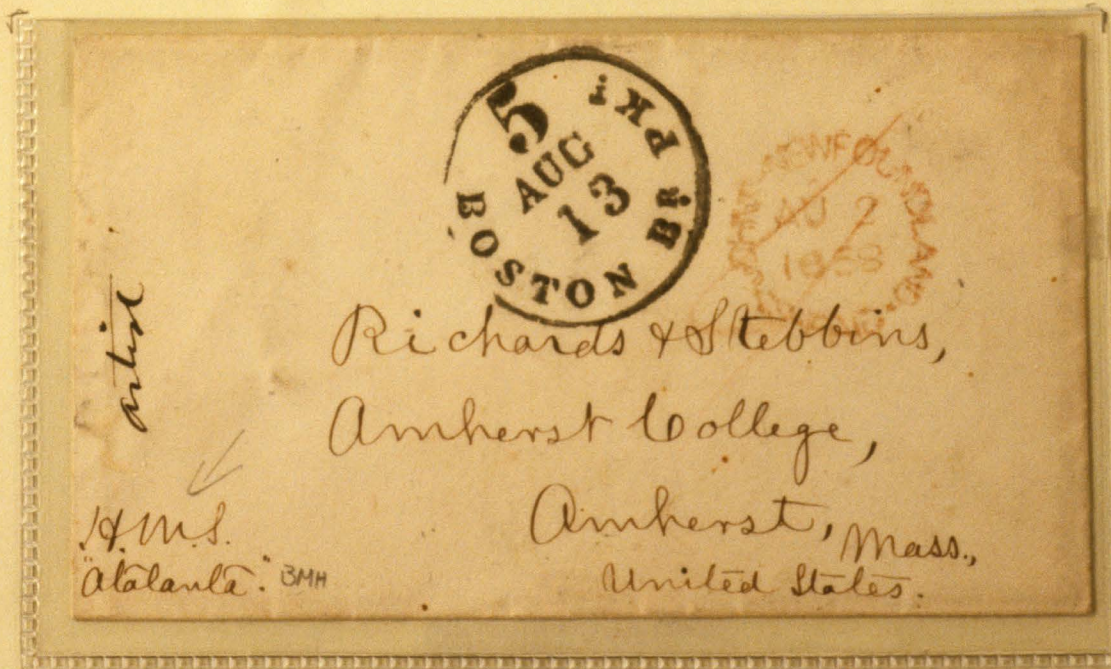 5
AUG
13
BOSTON Br. PKt
NEWFOUNDLAND
AU 2
1858
artist
Richards & Stebbins,
Amherst College,
Amherst, Mass.,
United States.
H.M.S.
"Atalanta." BMH